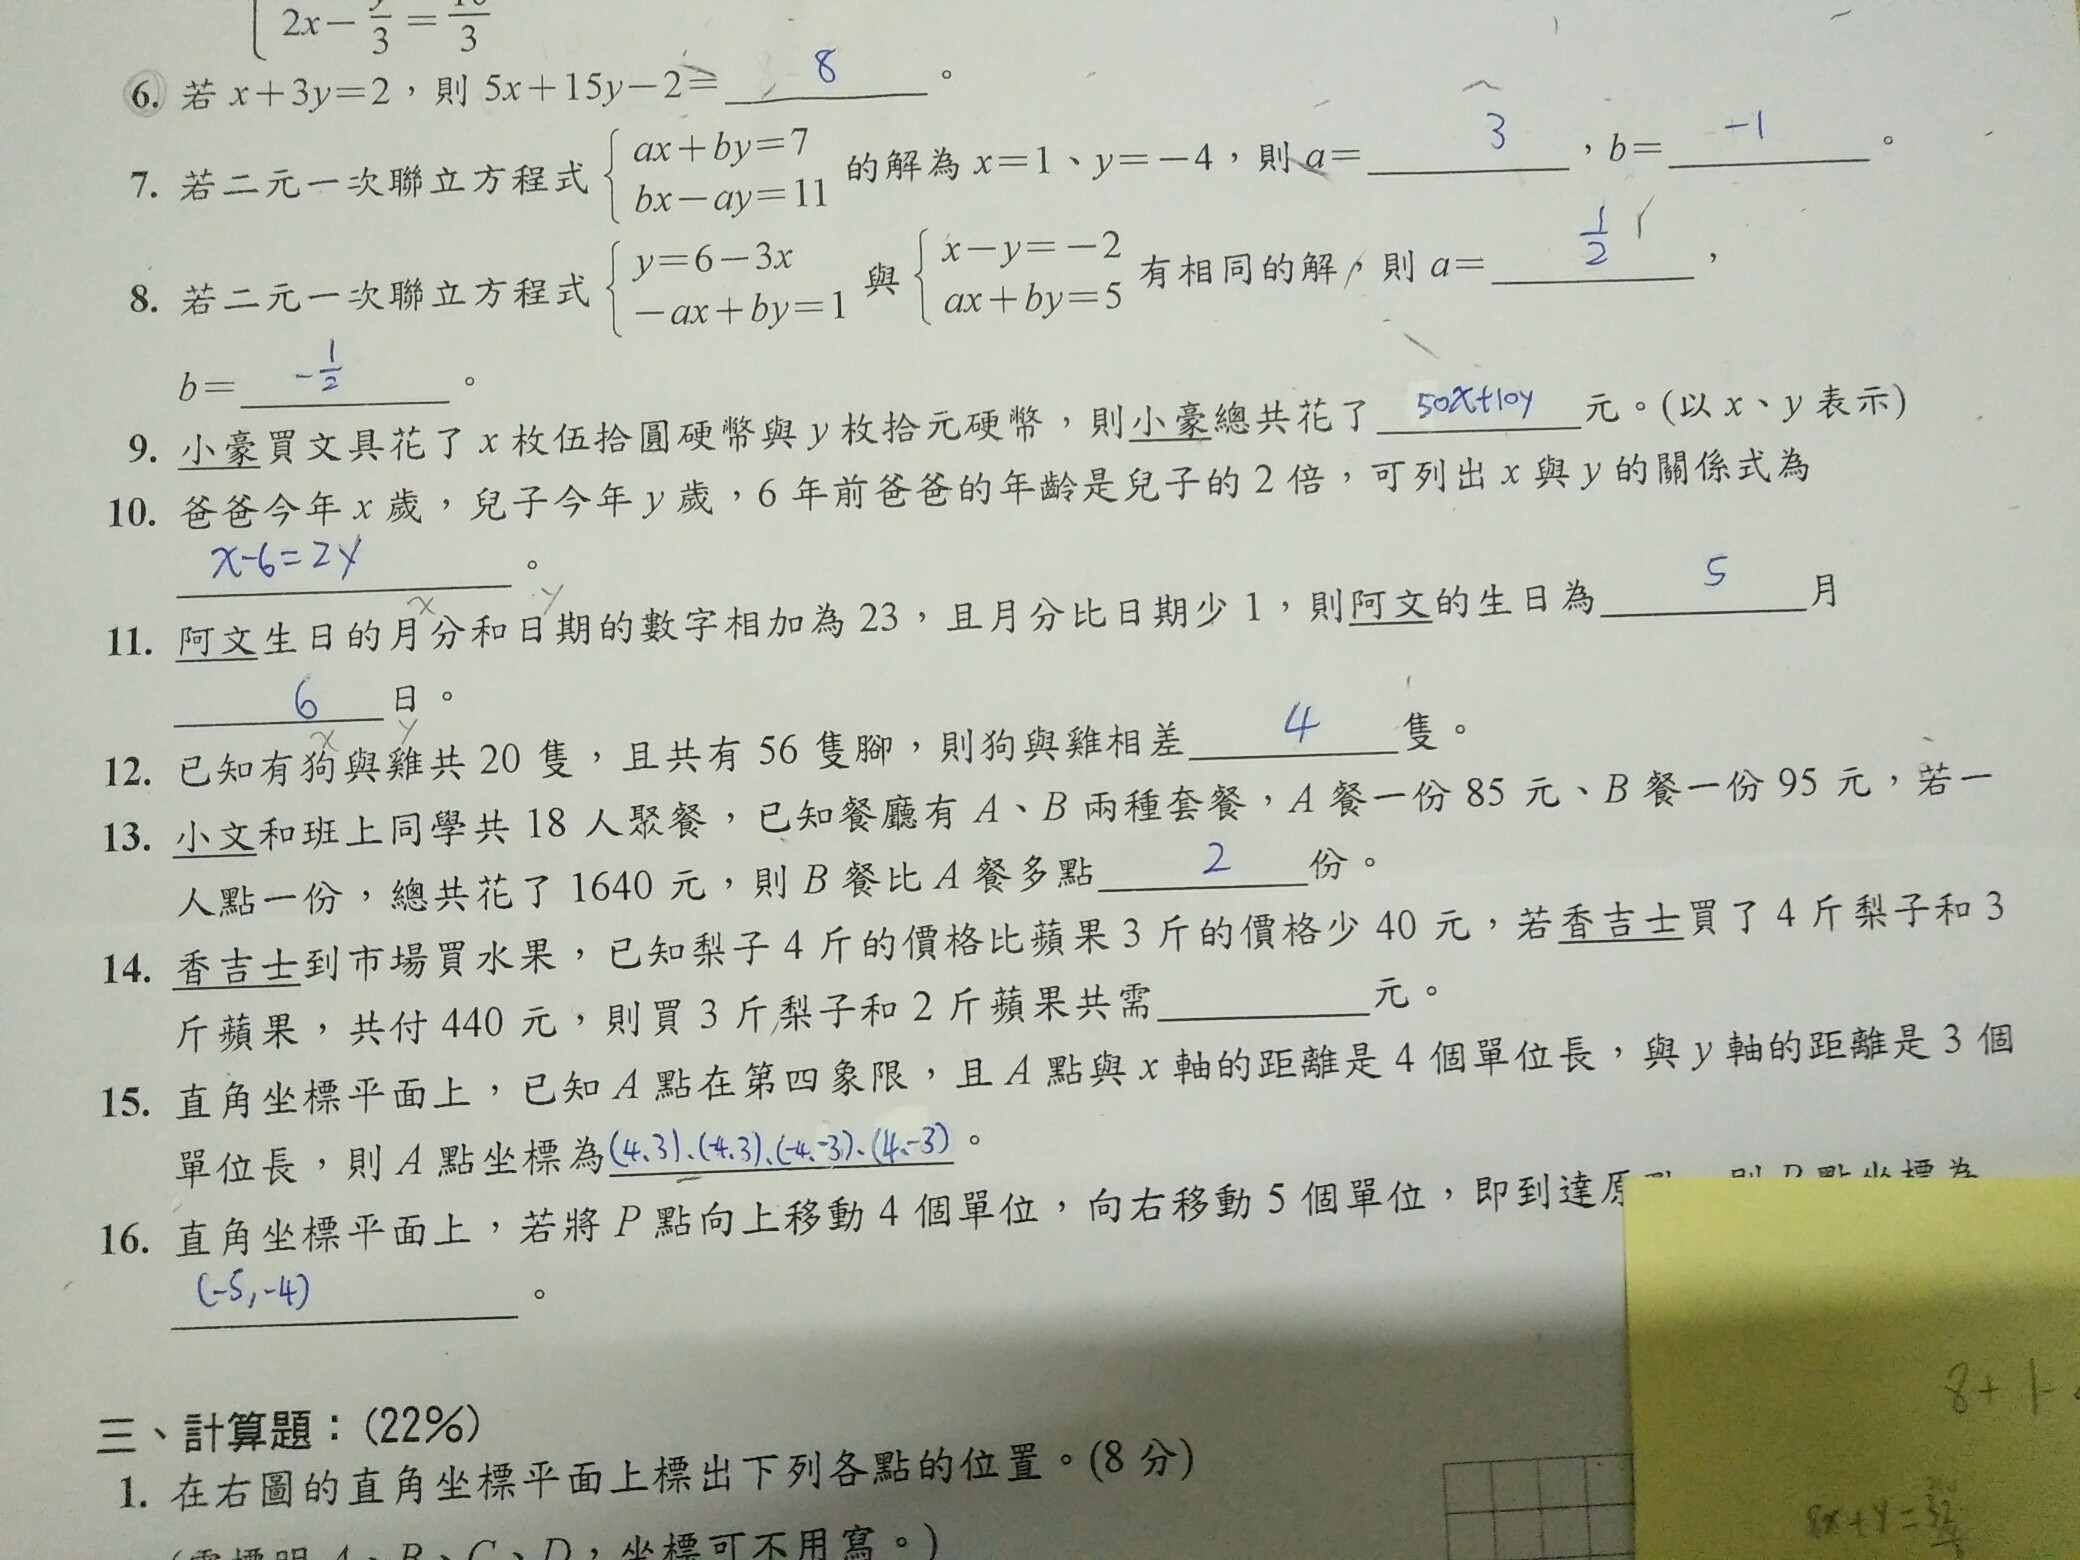 2x－y/3＝10/3
6. 若 x＋3y＝2，則 5x＋15y－2＝ 8 。
7. 若二元一次聯立方程式 { ax＋by＝7 bx－ay＝11 的解為 x＝1、y＝－4，則 a＝ 3 ，b＝ -1 。
8. 若二元一次聯立方程式 { y＝6－3x －ax＋by＝1 與 { x－y＝－2 ax＋by＝5 有相同的解，則 a＝ 1/2 ，
b＝ -1/2 。
9. 小豪買文具花了 x 枚伍拾圓硬幣與 y 枚拾元硬幣，則小豪總共花了 50x+10y 元。(以 x、y 表示)
10. 爸爸今年 x 歲，兒子今年 y 歲，6 年前爸爸的年齡是兒子的 2 倍，可列出 x 與 y 的關係式為
x-6=2y 。
x y
11. 阿文生日的月分和日期的數字相加為 23，且月分比日期少 1，則阿文的生日為 5 月
6 日。
x y
12. 已知有狗與雞共 20 隻，且共有 56 隻腳，則狗與雞相差 4 隻。
13. 小文和班上同學共 18 人聚餐，已知餐廳有 A、B 兩種套餐，A 餐一份 85 元、B 餐一份 95 元，若一
人點一份，總共花了 1640 元，則 B 餐比 A 餐多點 2 份。
14. 香吉士到市場買水果，已知梨子 4 斤的價格比蘋果 3 斤的價格少 40 元，若香吉士買了 4 斤梨子和 3
斤蘋果，共付 440 元，則買 3 斤梨子和 2 斤蘋果共需 元。
15. 直角坐標平面上，已知 A 點在第四象限，且 A 點與 x 軸的距離是 4 個單位長，與 y 軸的距離是 3 個
單位長，則 A 點坐標為 (4、3)、(-4、3)、(-4、-3)、(4、-3) 。
16. 直角坐標平面上，若將 P 點向上移動 4 個單位，向右移動 5 個單位，即到達原點，則 P 點坐標為
(-5,-4) 。
三、計算題：(22%)
8+1
1. 在右圖的直角坐標平面上標出下列各點的位置。(8 分)
8x+y=
(需標明 A、B、C、D，坐標可不用寫。)